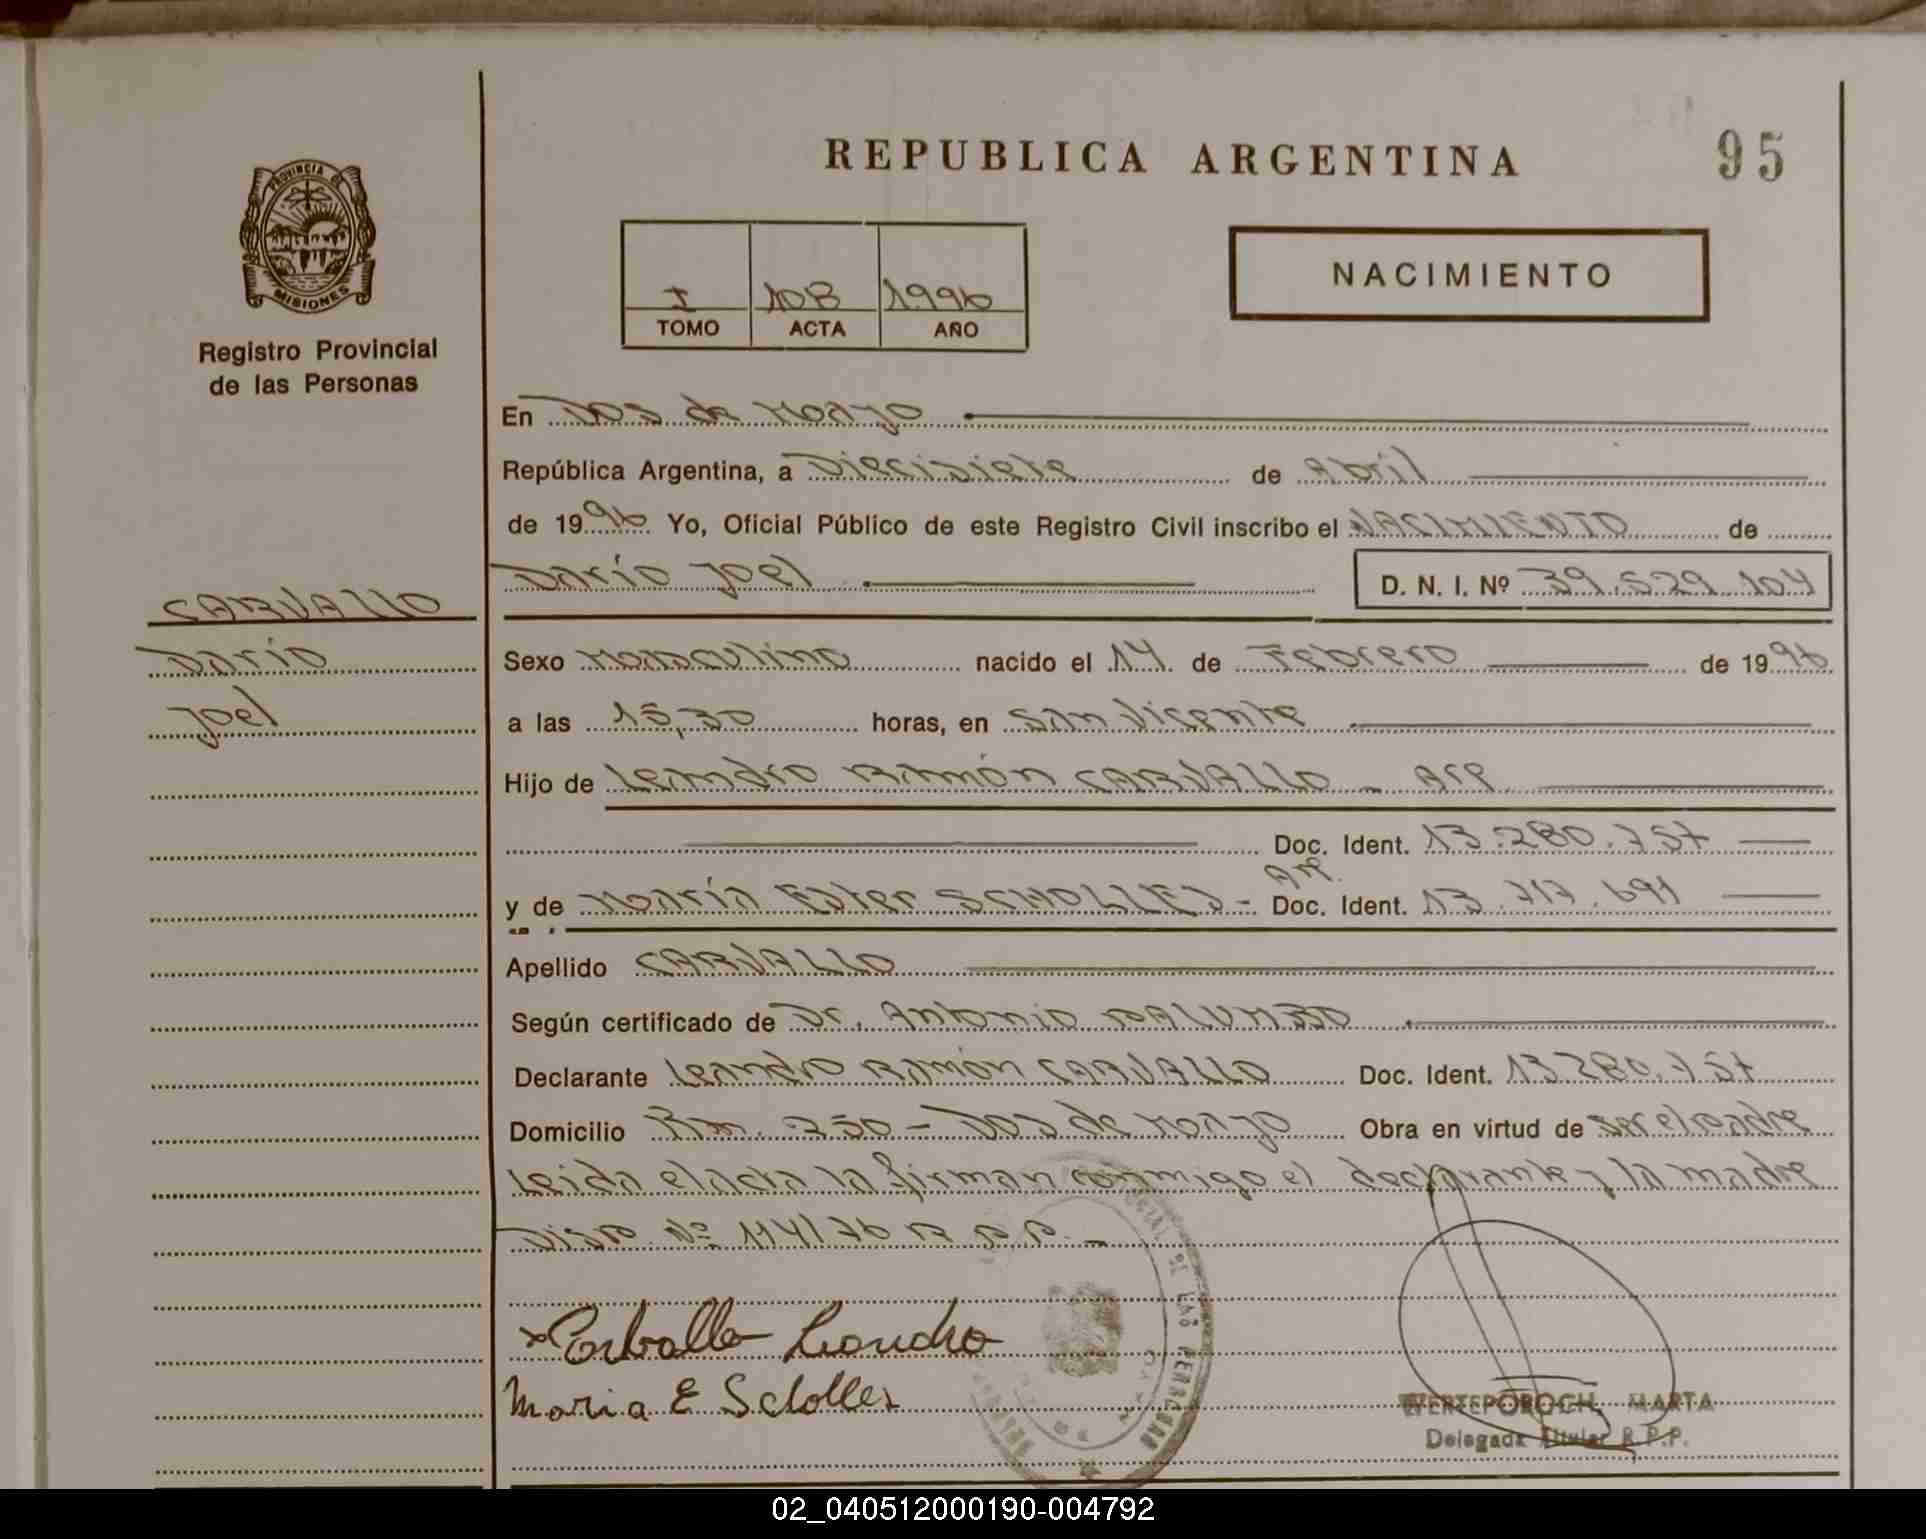 REPUBLICA ARGENTINA
95
PROVINCIA DE
MISIONES
Registro Provincial
de las Personas
I 108 1996
TOMO ACTA AÑO
NACIMIENTO
En Dos de Mayo
República Argentina, a Diecisiete de Abril
de 1996 Yo, Oficial Público de este Registro Civil inscribo el NACIMIENTO de
Darío Joel D. N. I. Nº 39.529.104
CARVALLO
Darío
Joel
Sexo Masculino nacido el 14 de Febrero de 1996
a las 15,30 horas, en San Vicente
Hijo de Leandro Ramón CARVALLO - Arg
Doc. Ident. 13.280.757
Arg.
y de María Ester SCHOLLES - Doc. Ident. 13.717.691
Apellido CARVALLO
Según certificado de Dr. Antonio PALUMBO
Declarante Leandro Ramón CARVALLO Doc. Ident. 13.280.757
Domicilio Km. 250 - Dos de Mayo Obra en virtud de ser el padre
Leida el acta la firman conmigo el declarante y la madre
Disp. Nº 114/76 R.P.P. -
x Carballo Leandro
Maria E Scholles
DE LAS PERSONAS
WERTEPOROCH, MARTA
Delegada Titular R.P.P.
02_040512000190-004792